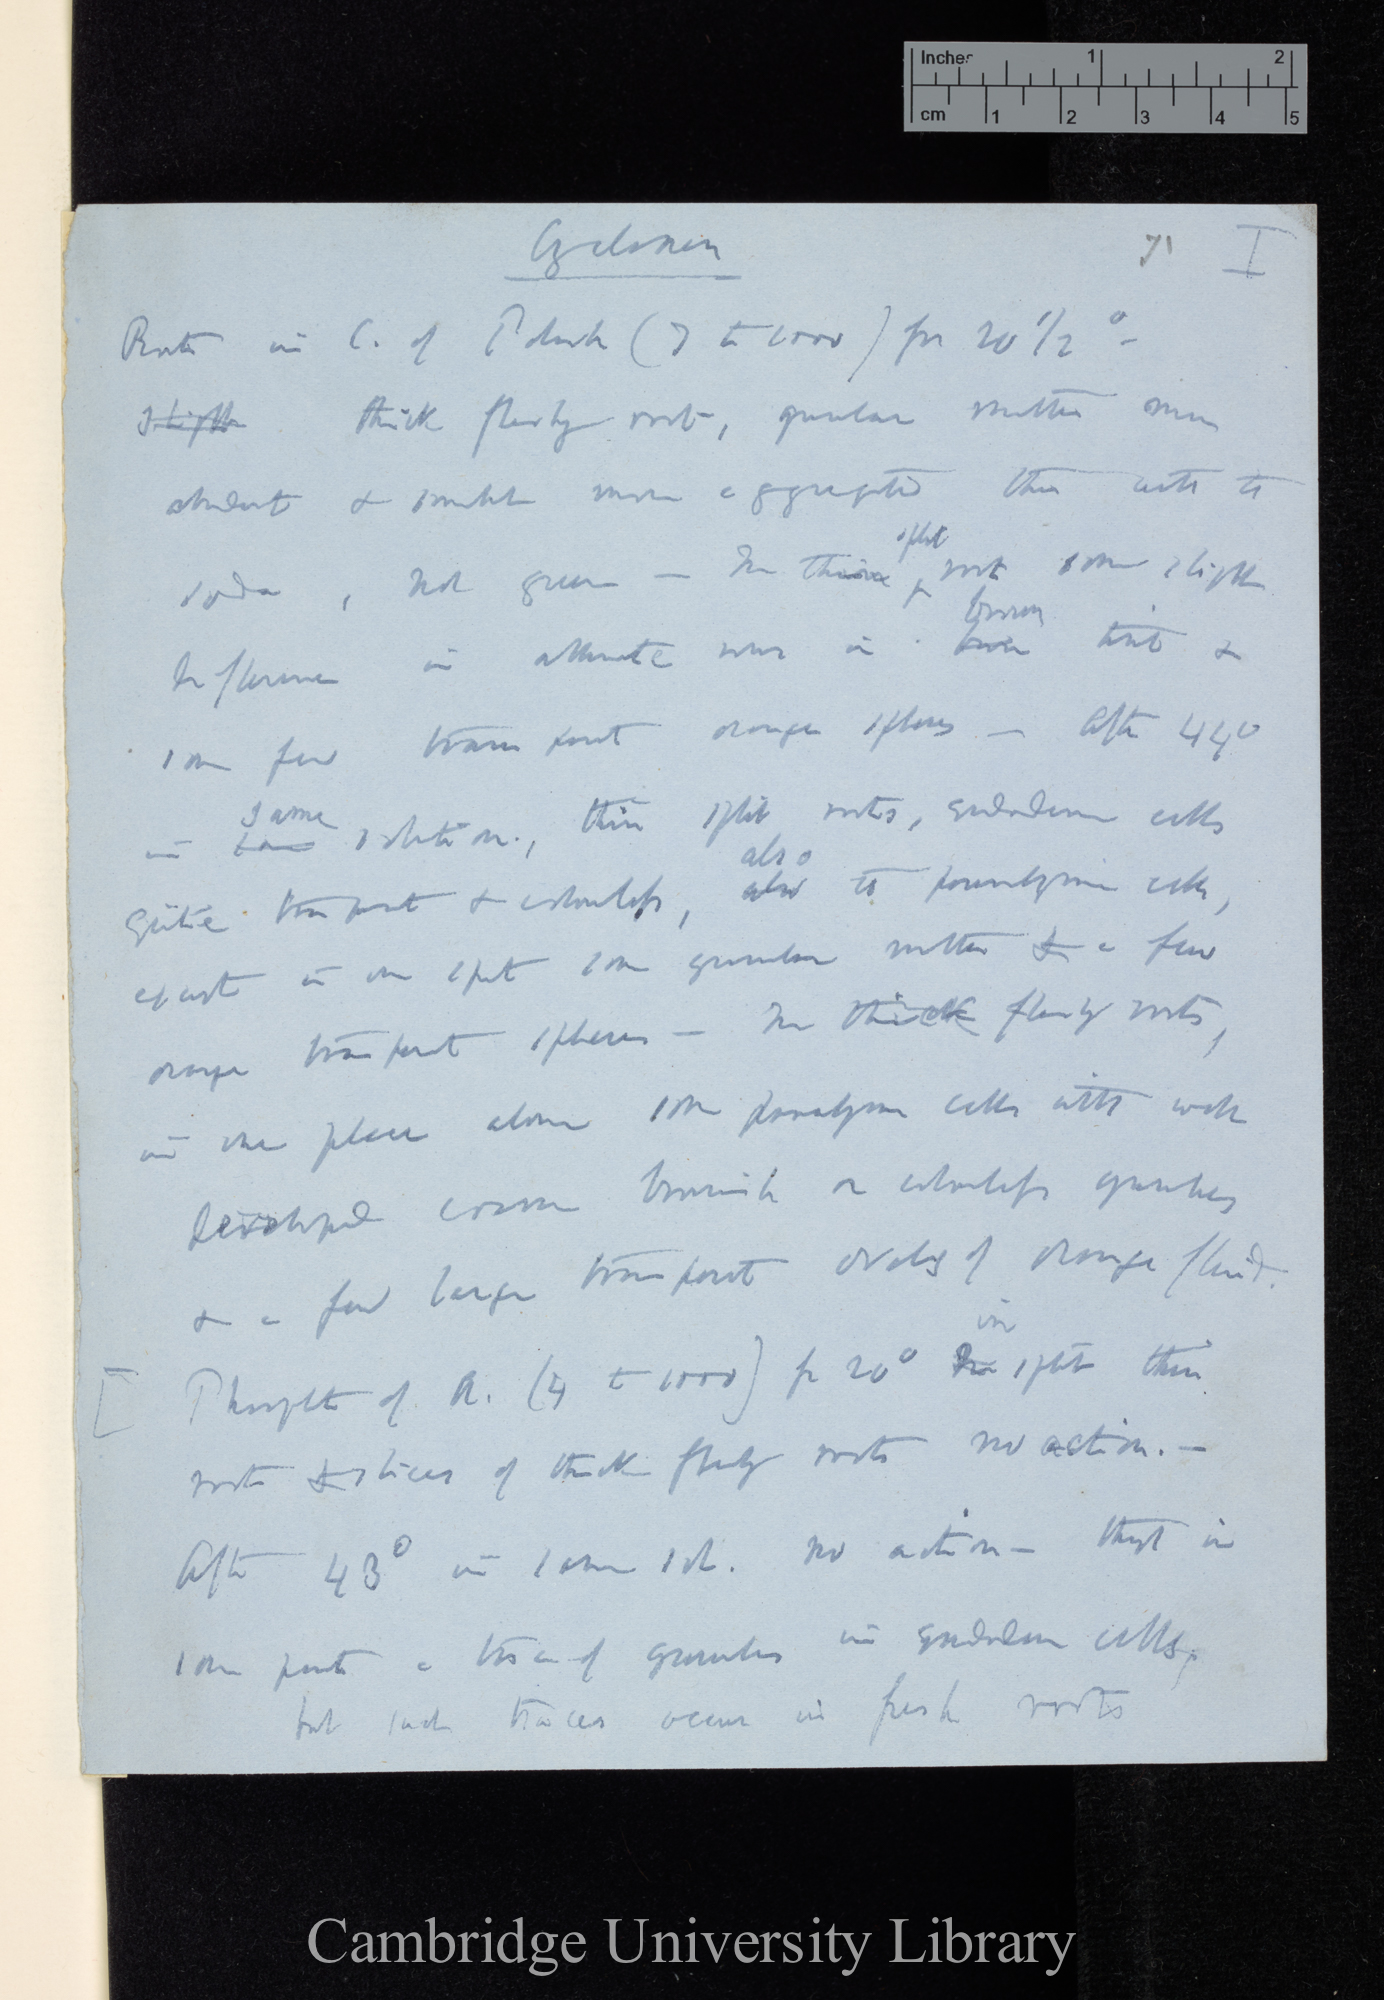 Inches 1 2
cm 1 2 3 4 5
Cyclamen 71 I
Roots in C. of Potash (7 to 1000) for 20 1/2° —
Slight thick fleshy root, granular matter more
abundant & somewhat more aggregated than with C
soda, not green — In thin split root some slight
difference in alternate rows in brown tint &
some few transparent orange spheres — After 44°
in same solution, thin split roots, exoderm cells
quite transparent & colourless, also to parenchyma cells,
except in one spot some granular matter & a few
orange transparent spheres — In thick fleshy roots,
in one place alone some parenchyma cells with well
developed coarse brownish or colourless granules
& a few large transparent ovals of orange fluid.
[Phosphate of A. (4 to 1000) for 20° in split thin
roots & slices of thick fleshy roots no action. —
After 43° in same sol. no action — though in
some parts a trace of granules in exoderm cells,
but such traces occur in fresh roots
Cambridge University Library